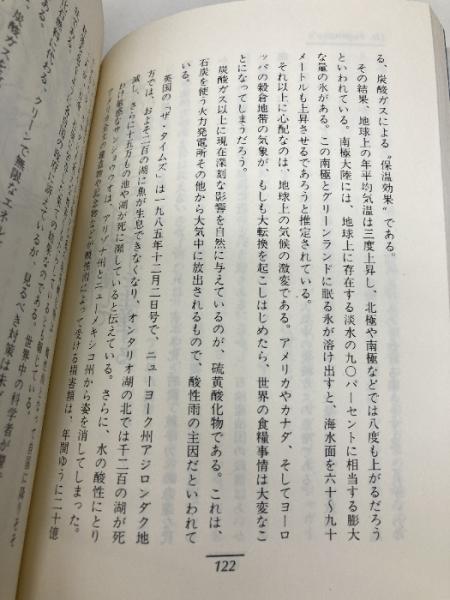 る、炭酸ガスによる〝保温効果〟である。
その結果、地球上の年平均気温は三度上昇し、北極や南極などでは八度も上がるだろう
といわれている。南極大陸には、地球上に存在する淡水の九〇パーセントに相当する膨大
な量の氷がある。この南極とグリーンランドに眠る氷が溶け出すと、海水面を六十～九十
メートルも上昇させるであろうと推定されている。
それ以上に心配なのは、地球上の気候の激変である。アメリカやカナダ、そしてヨーロ
ッパの穀倉地帯の気象が、もしも大転換を起こしはじめたら、世界の食糧事情は大変なこ
とになってしまうだろう。
炭酸ガス以上に現在深刻な影響を自然に与えているのが、硫黄酸化物である。これは、
石炭を使う火力発電所その他から大気中に放出されるもので、酸性雨の主因だといわれて
いる。
英国の「ザ・タイムズ」は一九八五年十二月二日号で、ニューヨーク州アジロンダク地
方では、およそ二百の湖に魚が生息できなくなり、オンタリオ湖の北では千二百の湖が死
滅し、さらに十五万もの池や湖が死に瀕していると伝えている。さらに、水の酸性にとり
わけ敏感なサンショウウオは、アリゾナ州とニューメキシコ州から姿を消してしまった。
によって受ける損害額は、年間ゆうに二十億
世界中の科学者が
見るべき対策は未
クリーンで無限なエネル
122